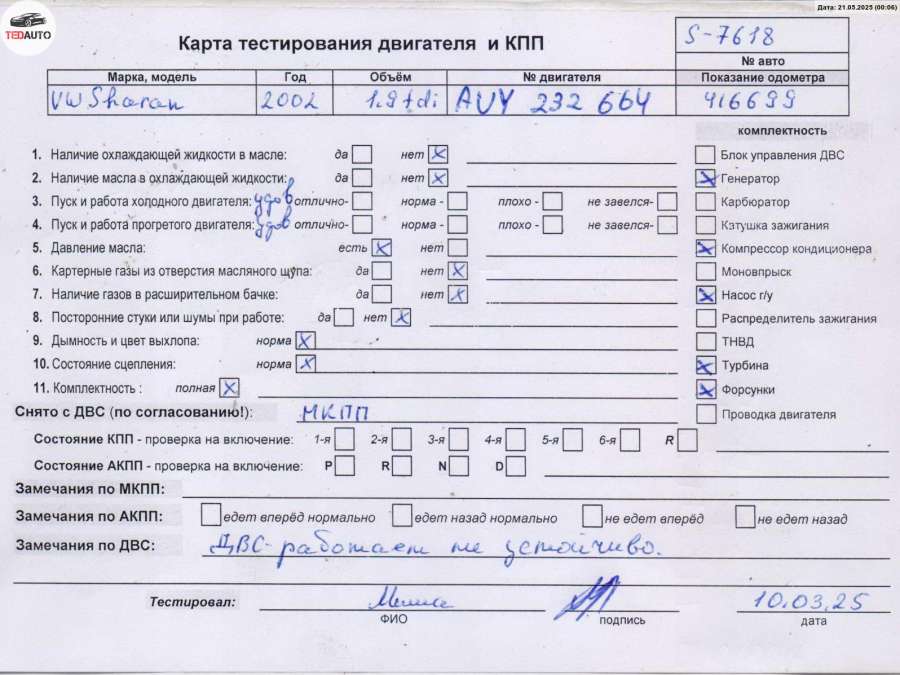 Дата: 21.05.2025 (00:06)
TEDAUTO
Карта тестирования двигателя и КПП
S-7618
№ авто
Марка, модель Год Объём № двигателя Показание одометра
VW Sharan 2002 1.9 tdi AUY 232 664 416699
комплектность
1. Наличие охлаждающей жидкости в масле: да нет X
Блок управления ДВС
2. Наличие масла в охлаждающей жидкости: да нет X
X Генератор
3. Пуск и работа холодного двигателя: удов отлично- норма - плохо - не завелся-
Карбюратор
4. Пуск и работа прогретого двигателя: удов отлично- норма - плохо - не завелся-
Катушка зажигания
5. Давление масла: есть X нет
X Компрессор кондиционера
6. Картерные газы из отверстия масляного щупа: да нет X
Моновпрыск
7. Наличие газов в расширительном бачке: да нет X
X Насос г/у
8. Посторонние стуки или шумы при работе: да нет X
Распределитель зажигания
9. Дымность и цвет выхлопа: норма X
ТНВД
10. Состояние сцепления: норма X
X Турбина
11. Комплектность : полная X
X Форсунки
Снято с ДВС (по согласованию!): МКПП
Проводка двигателя
Состояние КПП - проверка на включение: 1-я 2-я 3-я 4-я 5-я 6-я R
Состояние АКПП - проверка на включение: P R N D
Замечания по МКПП:
Замечания по АКПП: едет вперёд нормально едет назад нормально не едет вперёд не едет назад
Замечания по ДВС: ДВС-работает не устойчиво.
Тестировал: 10.03.25
ФИО подпись дата